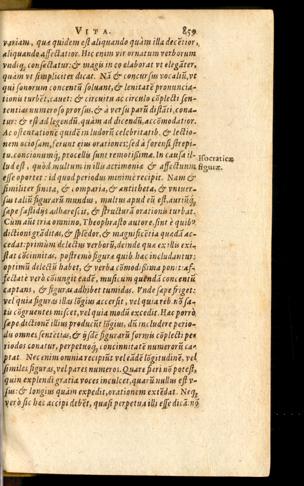 VITA. 859
variam, quæ quidem est aliquando quàm illa decētior,
aliquando affectatior. Hic enim vir ornatum verborum
vndiq; consectatur: & magis in eo elaborat vt eleganter,
quàm vt simpliciter dicat. Nā & concursus vocaliū, vt
qui sonorum concentū soluant, & lenitatē pronunciationis
tionū turbēt, cauet: & circuitu ac circulo cōplecti sententias
tentias numeroso prorsus, & a versu parū distāti, conatur:
tur: & est ad legendū, quàm ad dicendū, accōmodatior.
Ac ostentationē quidē in ludorū celebritatib. & lectionem
nem ociosam, ferunt eius orationes: sed à forensi strepitu,
tu, concionumq́; procellis sunt remotissimæ. In causa illud
lud est, quòd multum in illis acrimoniæ & affectuum
esse oportet: id quod periodus minimè recipit. Nam &
similiter finita, & comparia, & antitheta, & vniuersus
sus taliū figurarū mundus, multus apud eū est, auriūq́;
sæpe fastidijs adhærescit, & structurā orationis turbat.
Cum aūt tria omnino, Theophrasto autore, sint è quibꝰ
dictioni grāditas, & splēdor, & magnificētia quædā accedat:
cedat: primùm delectus verborū, deinde quæ ex illis existat
stat cōcinnitas, postremò figuræ quib. hæc includantur:
optimū delectū habet, & verba cōmodissima ponit: affectatè
fectatè verò cōiungit eadē, musicum quendā concentū
captans, & figuras adhibet tumidas. Vnde sæpe friget:
vel quia figuras illas lōgius accersit, vel quia reb. nō satis
tis cōgruentes miscet, vel quia modū excedit. Hæc porrò
sæpe dictionē illius producūt lōgius, dū includere periodis
dis omnes sentētias, & ijsdē figurarū formis cōplecti periodos
riodos conatur, perpetuoq́; concinnitatē numerorū captat.
ptat. Nec enim omnia recipiūt vel eādē lōgitudinē, vel
similes figuras, vel pares numeros. Quare fieri nō potest,
quin explendi gratia voces inculcet, quarū nullus est vsus:
sus: & longius quàm expedit, orationem extēdat. Neq;
verò sic hæc accipi debēt, quasi perpetua illi esse dicā: nō
Isocraticæ
figuræ.